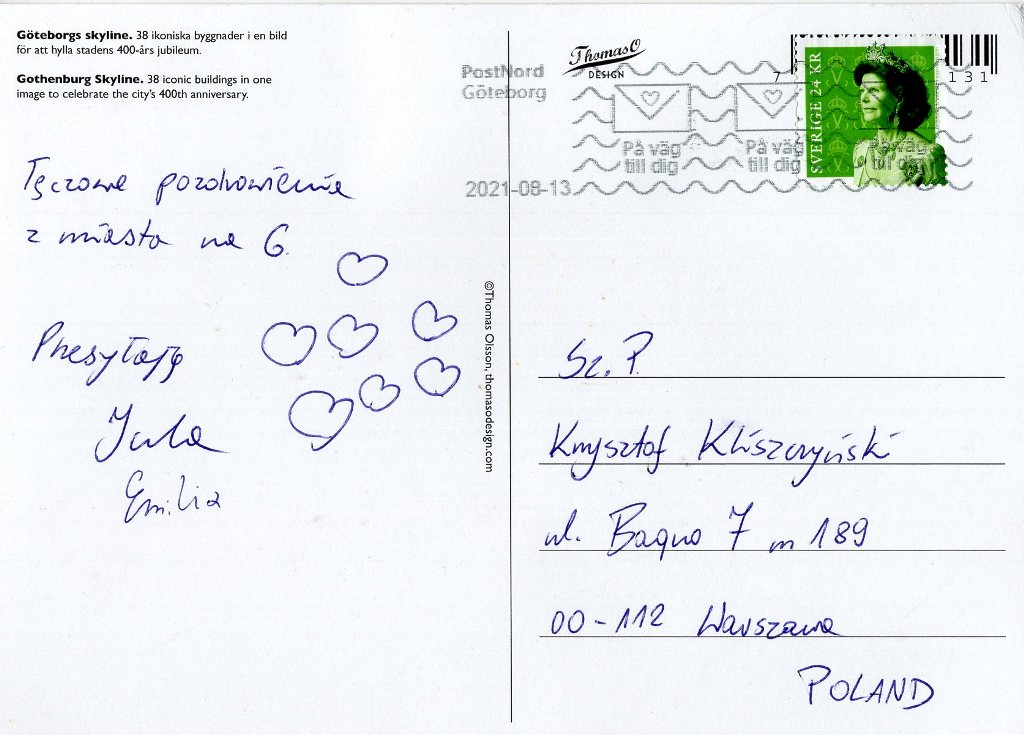 Göteborgs skyline. 38 ikoniska byggnader i en bild
för att hylla stadens 400-års jubileum.
Gothenburg Skyline. 38 iconic buildings in one
image to celebrate the city's 400th anniversary.
Tęczowe pozdrowienia
z miasta na G.
Przesyłają
Jula
Emilia
©Thomas Olsson, thomasodesign.com
ThomasO
DESIGN
PostNord
Göteborg
2021-08-13
På väg
till dig
På väg
till dig
På väg
till dig
SVERIGE 24 KR
7
131
Sz. P.
Krzysztof Kliszczyński
ul. Bagno 7 m 189
00-112 Warszawa
POLAND